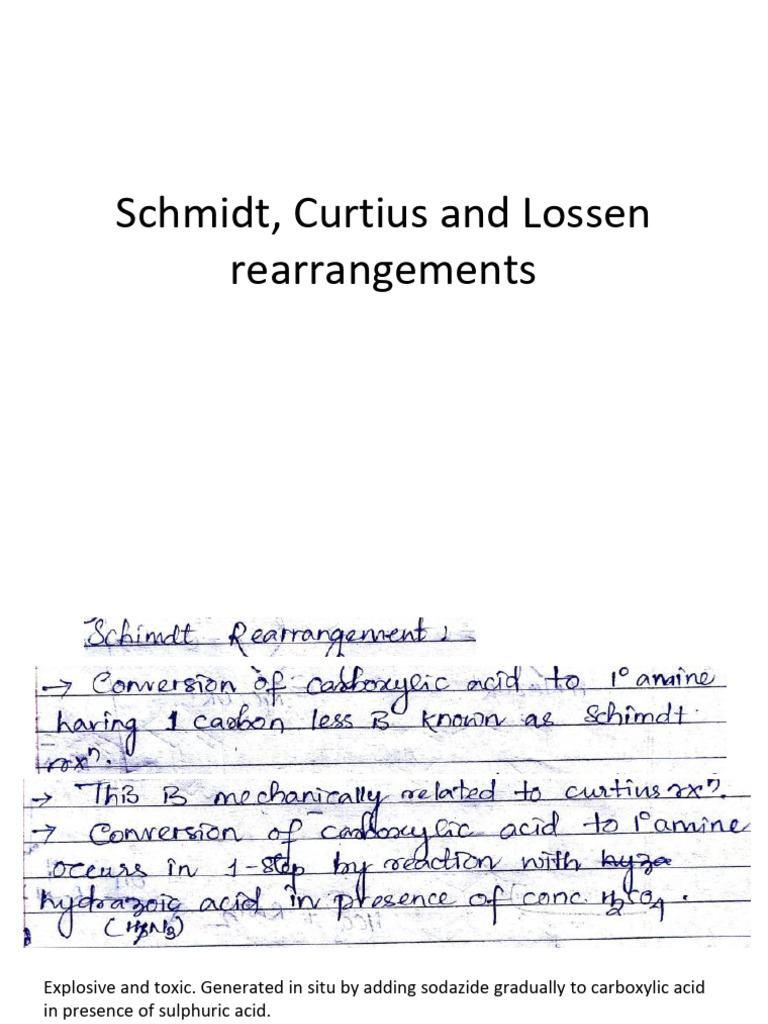 Schmidt, Curtius and Lossen
rearrangements
Schimdt Rearrangement:
→ Conversion of carboxylic acid to 1° amine
having 1 carbon less is known as Schimdt
rxⁿ.
→ This is mechanically related to curtius rxⁿ.
→ Conversion of carboxylic acid to 1° amine
occurs in 1-step by reaction with hyza
hydrazoic acid in presence of conc. H₂SO₄.
Explosive and toxic. Generated in situ by adding sodazide gradually to carboxylic acid
in presence of sulphuric acid.